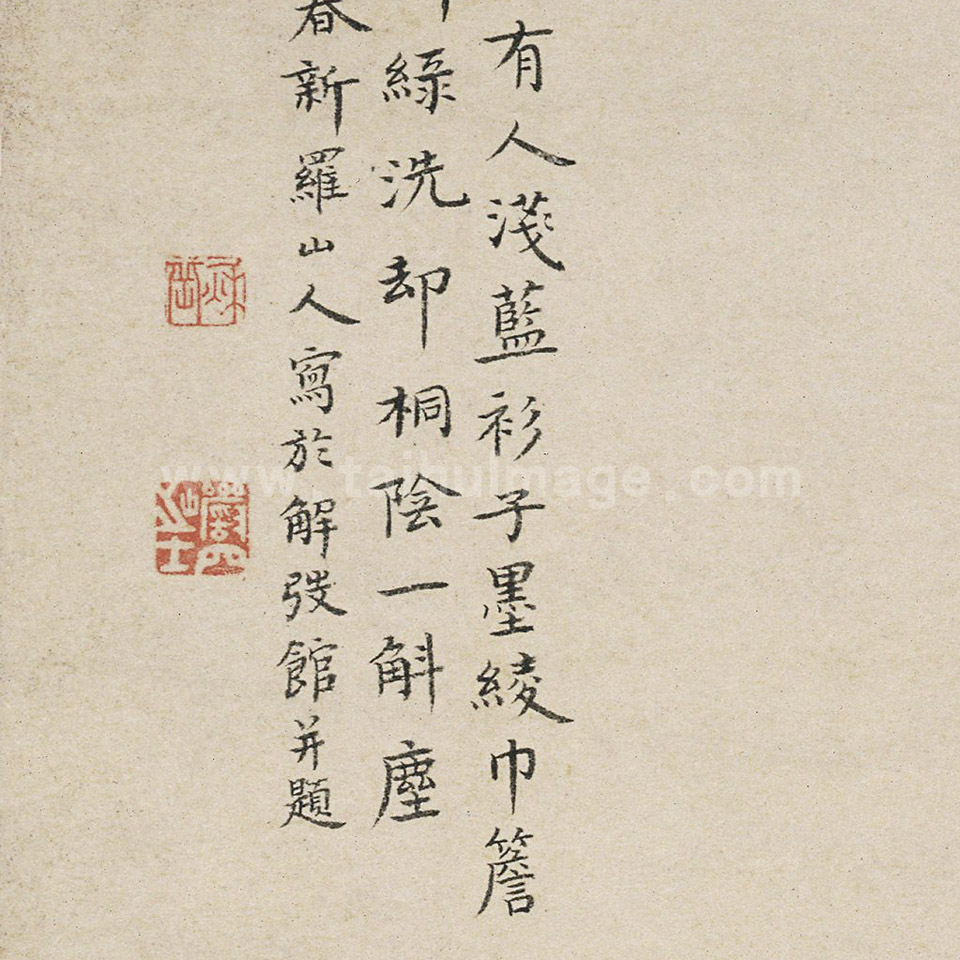 有人淺藍衫子墨綾巾簷
綠洗却桐陰一斛塵
春新羅山人寫於解弢館并題
www.taihuimage.com